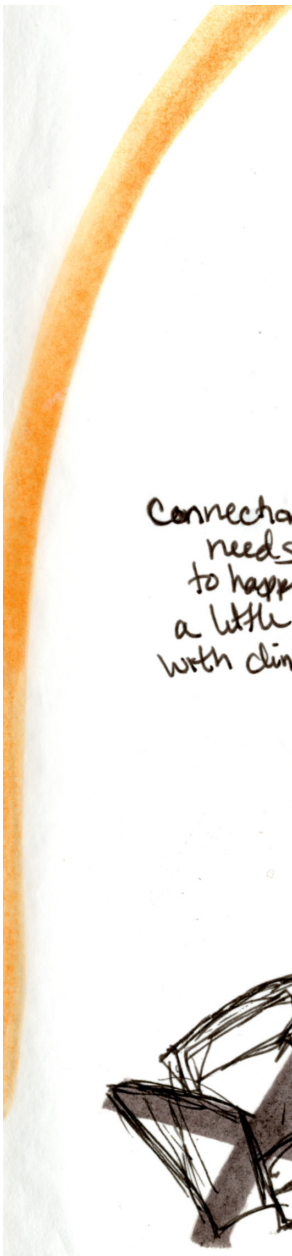 Connectio
needs
to happe
a little
with din